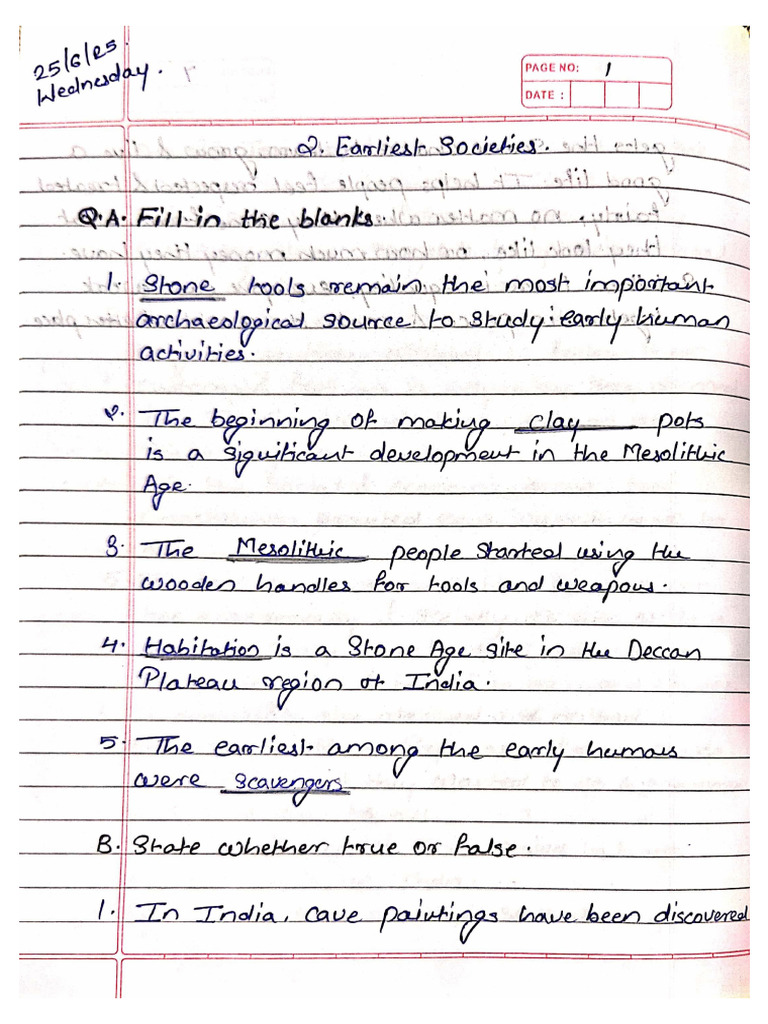 25/6/25.
Wednesday.
PAGE NO: 1
DATE :
2. Earliest Societies.
Q.A. Fill in the blanks.
1. Stone tools remain the most important
archaeological source to study early human
activities.
2. The beginning of making clay pots
is a significant development in the Mesolithic
Age.
3. The Mesolithic people started using the
wooden handles for tools and weapons.
4. Habitation is a Stone Age site in the Deccan
Plateau region of India.
5. The earliest among the early humans
were scavengers
B. State whether true or false.
1. In India, cave paintings have been discovered